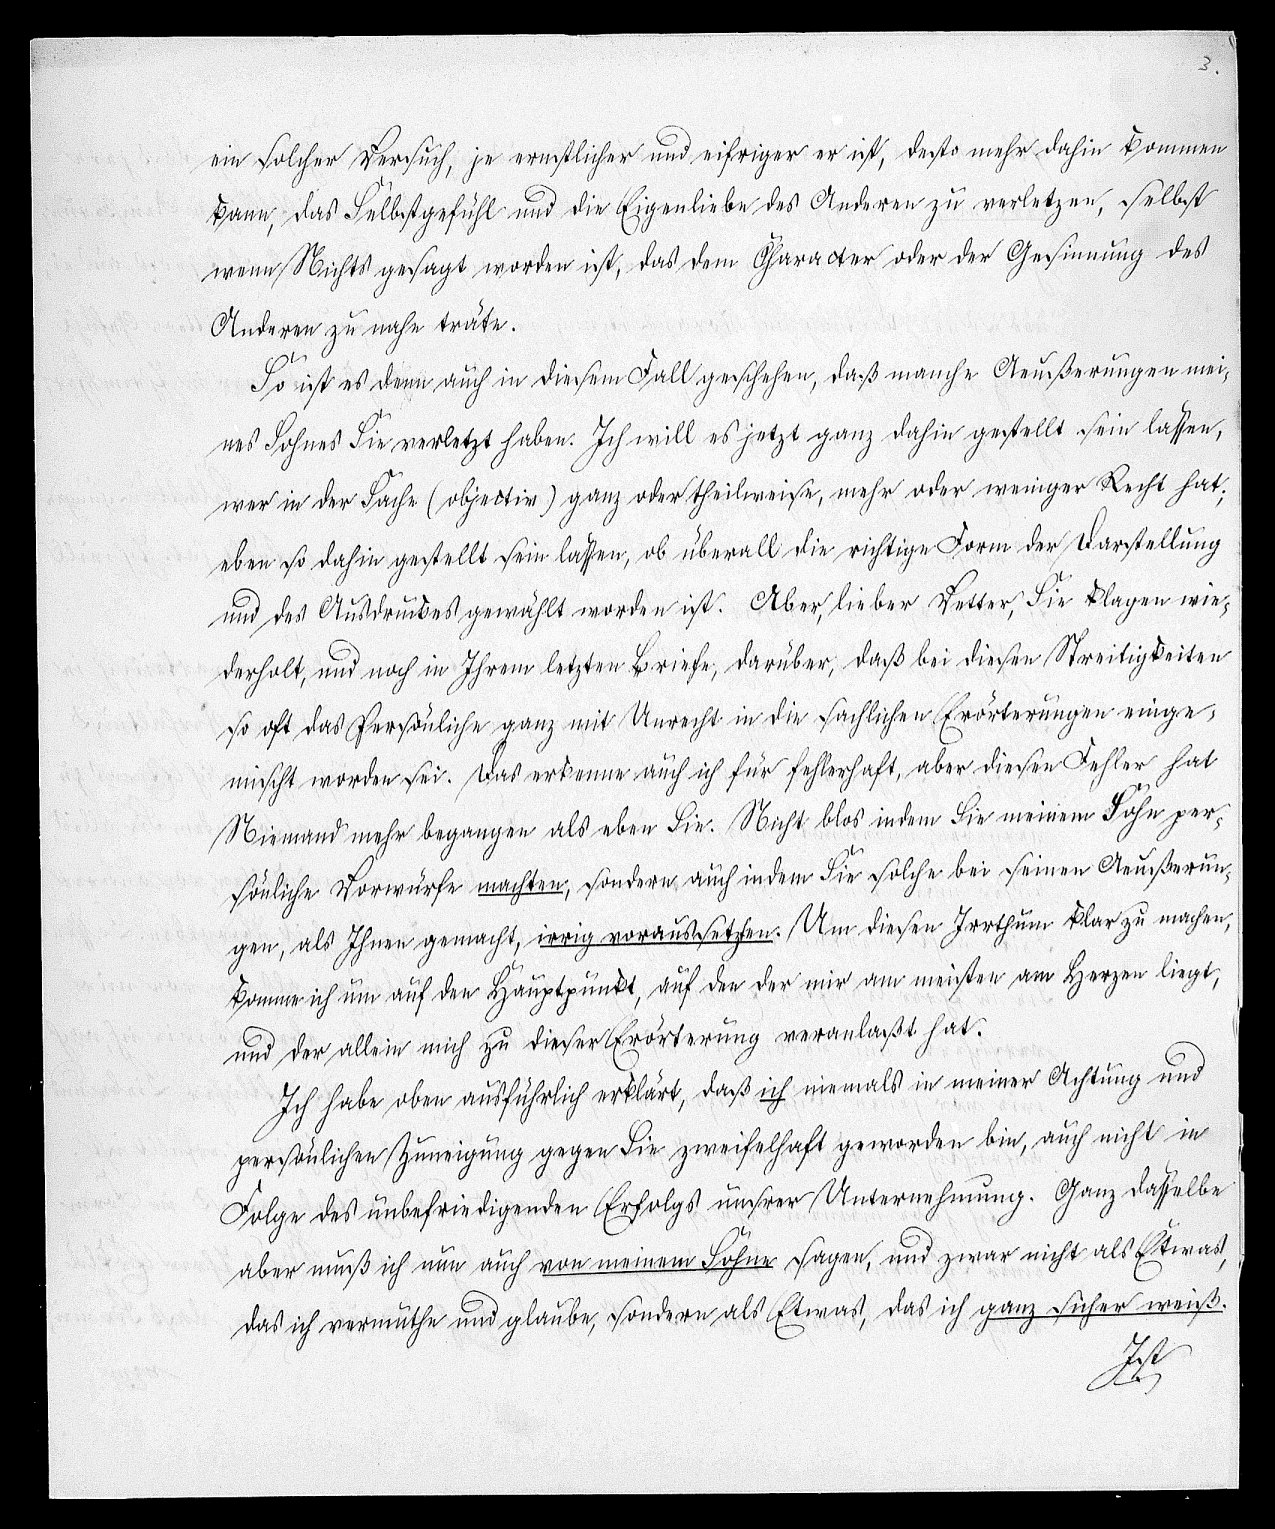 3.
ein solcher Versuch, je ernstlicher und eifriger er ist, desto mehr dahin kommen
kann, das Selbstgefühl und die Eigenliebe des Anderen zu verletzen, selbst
wenn Nichts gesagt worden ist, das dem Character oder der Gesinnung des
Anderen zu nahe träte.
So ist es denn auch in diesem Fall geschehen, daß manche Aeußerungen mei-
nes Sohnes Sie verletzt haben. Ich will es jetzt ganz dahin gestellt sein lassen,
wer in der Sache (objectiv) ganz oder theilweise, mehr oder weniger Recht hat;
eben so dahin gestellt sein lassen, ob überall die richtige Form der Darstellung
und des Ausdruckes gewählt worden ist. Aber, lieber Vetter, Sie klagen wie-
derholt, und noch in Ihrem letzten Briefe, darüber, daß bei diesen Streitigkeiten
so oft das Persönliche ganz mit Unrecht in die sachlichen Erörterungen einge-
mischt worden sei. Das erkenne auch ich für fehlerhaft, aber diesen Fehler hat
Niemand mehr begangen als eben Sie. Nicht blos indem Sie meinem Sohn per-
sönliche Vorwürfe machten, sondern auch indem Sie solche bei seinen Aeußerun-
gen, als Ihnen gemacht, irrig voraussetzen. Um diesen Irrthum klar zu machen,
komme ich nun auf den Hauptpunkt, auf den der mir am meisten am Herzen liegt,
und der allein mich zu dieser Erörterung veranlaßt hat.
Ich habe oben ausführlich erklärt, daß ich niemals in meiner Achtung und
persönlichen Zuneigung gegen Sie zweifelhaft geworden bin, auch nicht in
Folge des unbefriedigenden Erfolgs unsrer Unternehmung. Ganz dasselbe
aber muß ich nun auch von meinem Sohne sagen, und zwar nicht als Etwas,
das ich vermuthe und glaube, sondern als Etwas, das ich ganz sicher weiß.
Ist